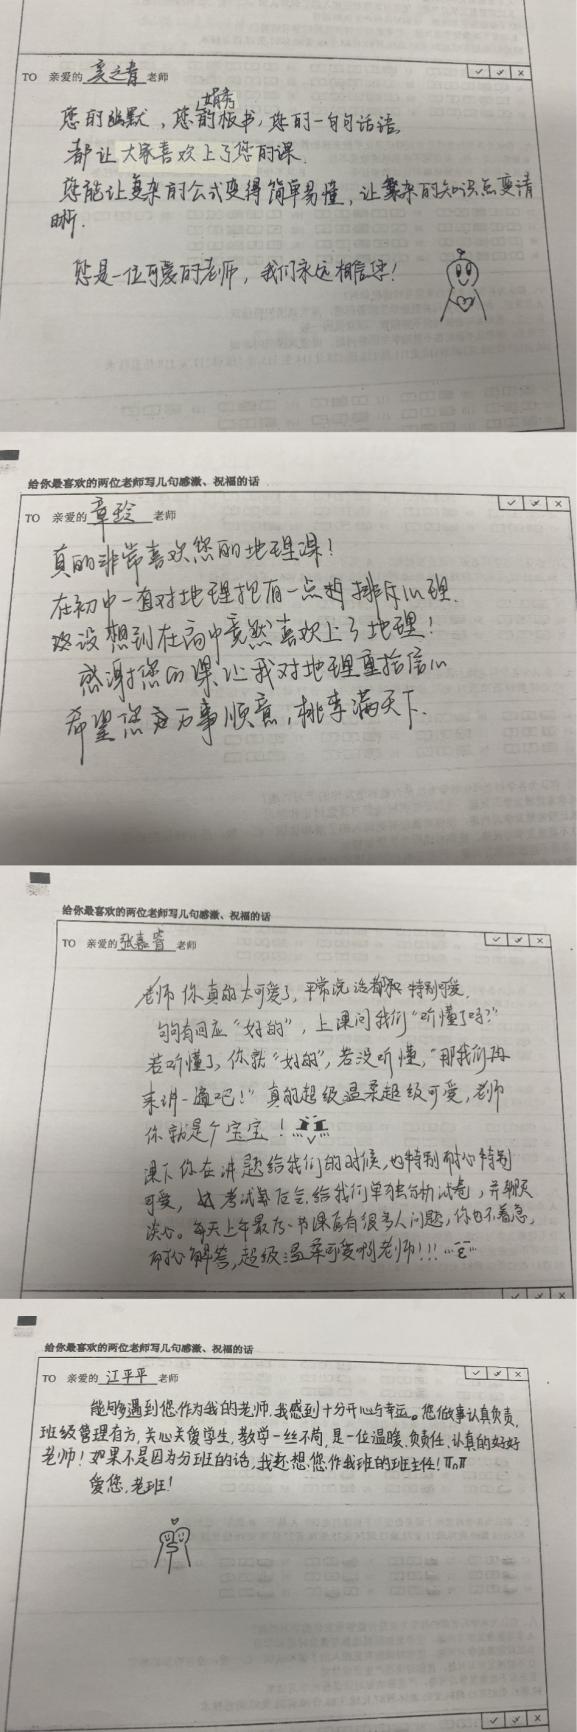 TO 亲爱的 吴之青 老师
娟秀
您的幽默，您的板书，您的一句句话语，
都让大家喜欢上了您的课.
您能让复杂的公式变得简单易懂，让繁杂的知识点变清
晰.
您是一位可爱的老师，我们永远相信您！
给你最喜欢的两位老师写几句感激、祝福的话
TO 亲爱的 章玲 老师
真的非常喜欢您的地理课！
在初中一直对地理抱有一点排斥心理.
没想到在高中竟然喜欢上了地理！
感谢您的课让我对地理重拾信心
希望您万事顺意，桃李满天下.
给你最喜欢的两位老师写几句感激、祝福的话
TO 亲爱的 张嘉 老师
老师你真的太可爱了，平常说话都特别可爱，
句句有回应“好的”，上课问我们“听懂了吗？”
若听懂了，你就“好的”，若没听懂，“那我们再
来讲一遍吧！”真的超级温柔超级可爱，老师
你就是个宝宝！
课下你在讲题给我们的时候，也特别耐心特别
可爱，考试每次会给我们单独分析试卷，并聊天
谈心。每天上午最后一节课有很多人问题，你也不着急，
耐心解答，超级温柔可爱啊老师！！！
给你最喜欢的两位老师写几句感激、祝福的话
TO 亲爱的 江平平 老师
能够遇到您作为我的老师，我感到十分开心与幸运。您做事认真负责，
班级管理有方，关心关爱学生，教学一丝不苟，是一位温暖、负责任、认真的好好
老师！如果不是因为分班的话，我还想您作我班的班主任！TnT
爱您，老班！